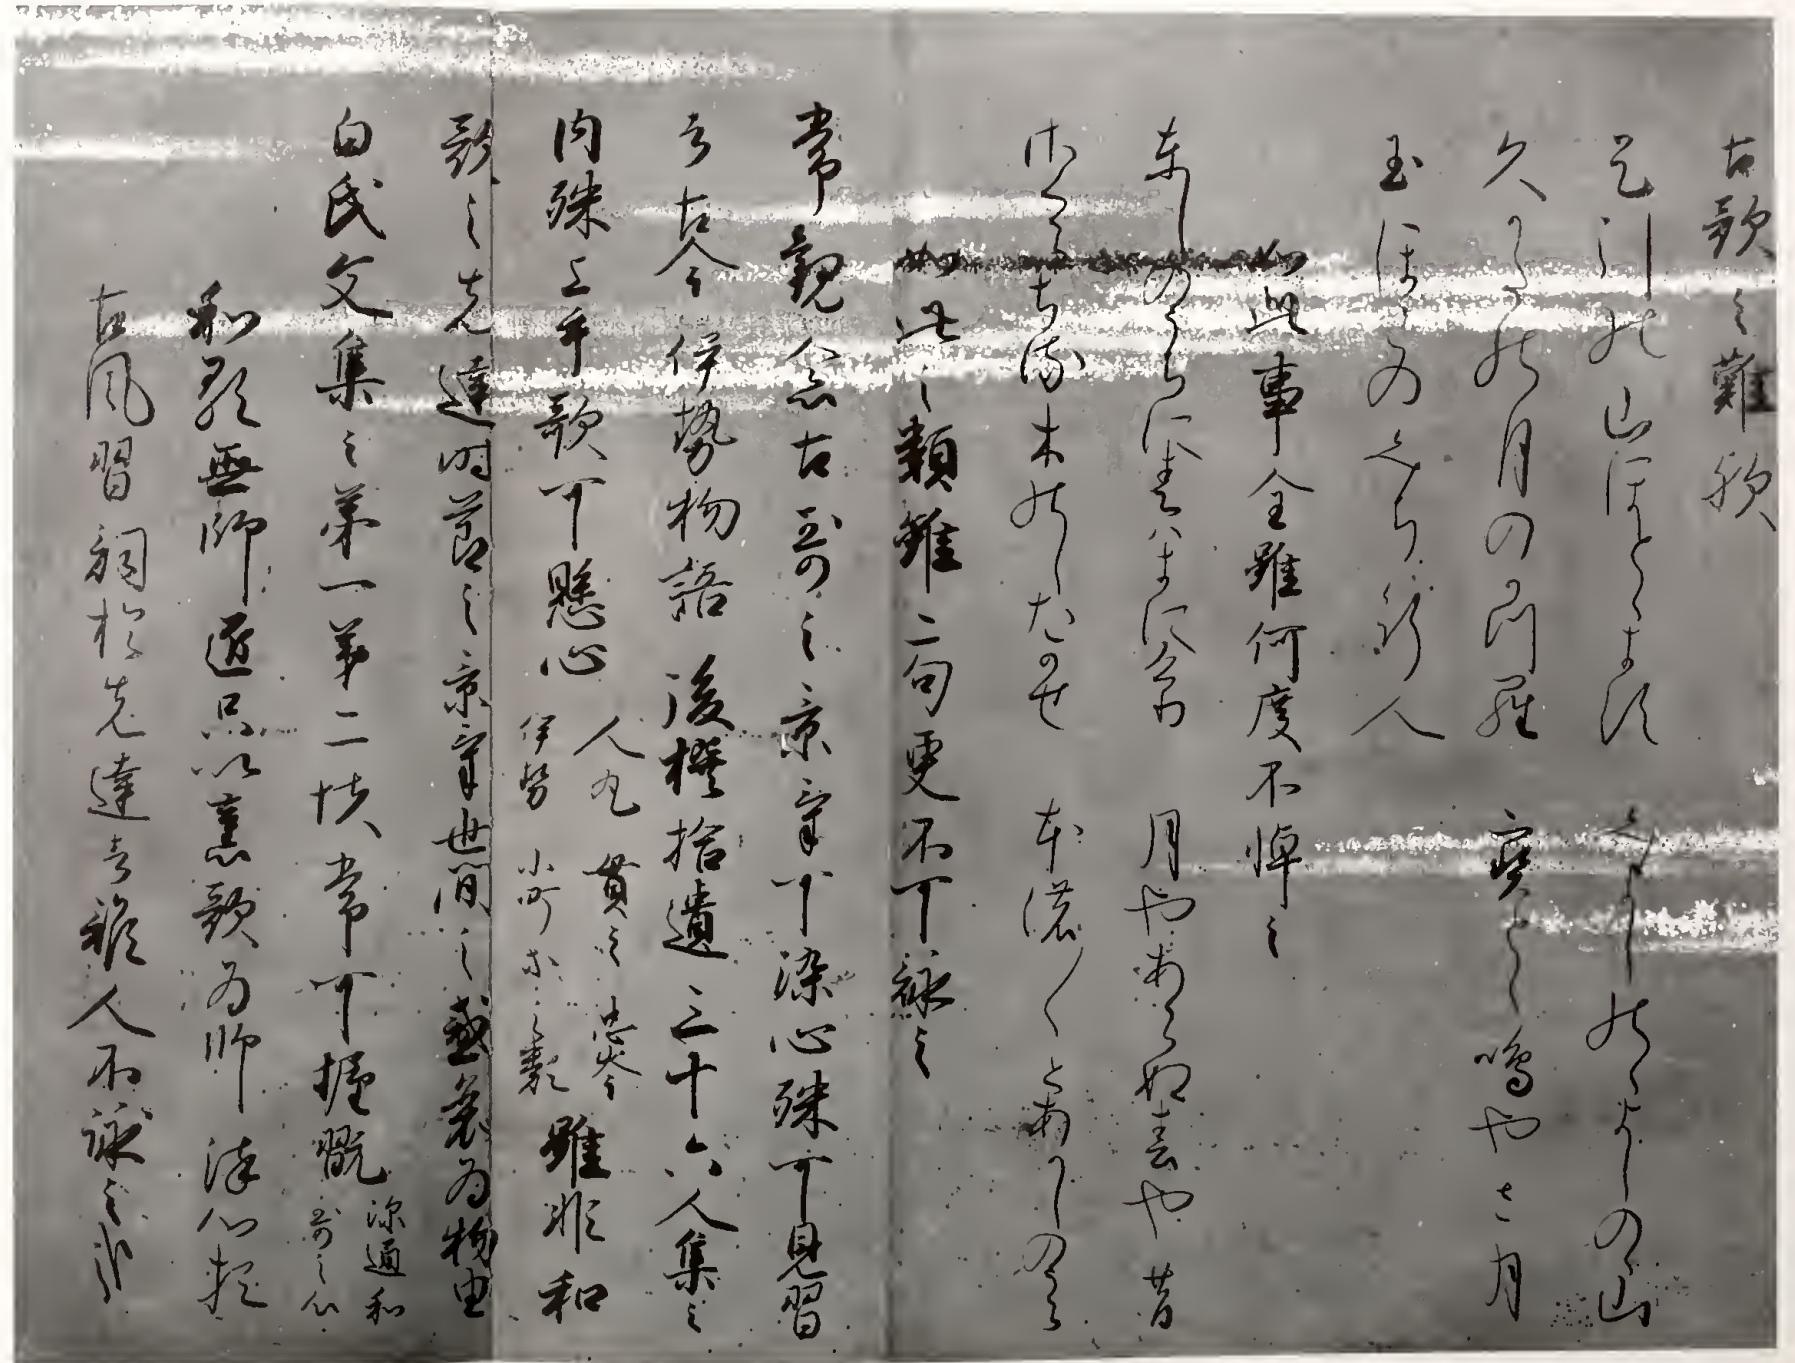 古歌之難歟
足引の山ほとゝきす　みよしのゝよしのゝ山
久かたの月のかつら　ほとゝきす鳴やさ月
玉ほこのみち行人
如此事全雖何度不憚之
年のうちに春はきにけり　月やあらぬ春や昔
さくらちる木のしたかせ　ほの〱とあかしのうら
如此之類雖二句更不可詠之
常観念古哥之景気可染心殊可見習
者古今伊勢物語後撰拾遺三十六人集之
内殊上手歌可懸心　人丸　貫之　忠岑　伊勢　小町等之類　雖非和
歌之先達時節之景気世間之盛衰為物由
白氏文集之第一第二帙常可握翫　深通和哥之心
和歌無師匠只以舊歌為師　染心於
古風習詞於先達者雖人不詠之哉